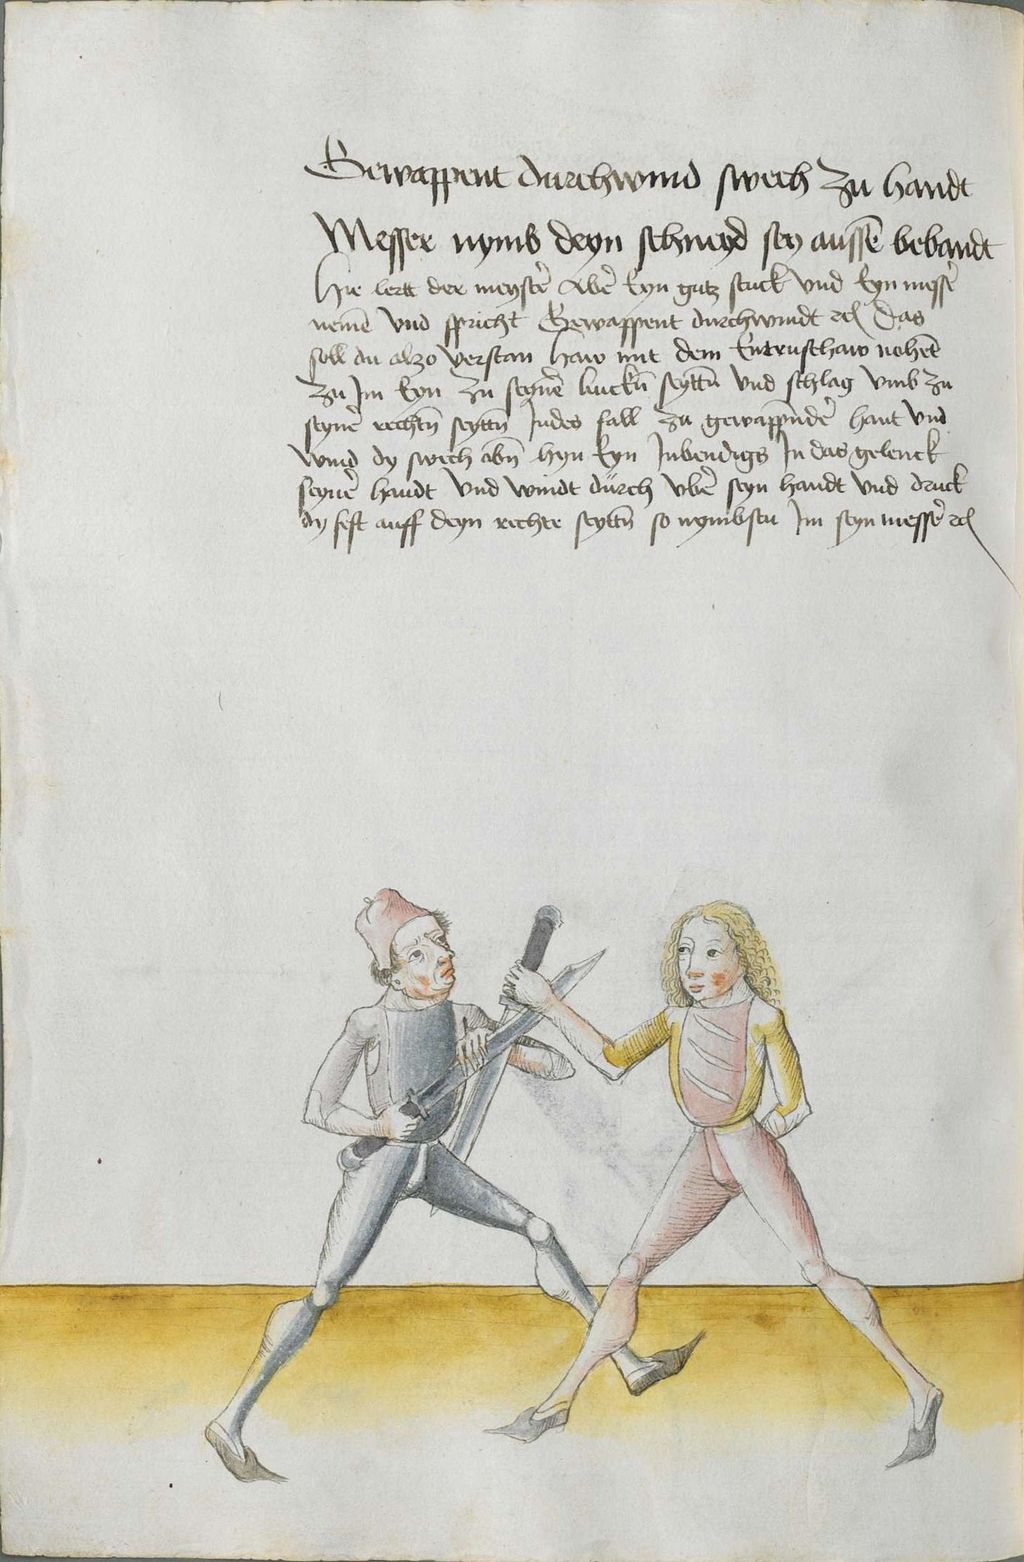 Gewappent durchwind swech zu handt
Messer nymb deyn schneyd sey aussē bebandt
Hie lertt der meystē Abē Eyn gutz stuck vnd Eyn messē
nemē vnd spricht Gewappent durchwindt etc̄ Das
soll du alzo verstan Haw mit dem Entrusthaw nohēt
zu Im Eyn zu seynē linckn̄ seyttn̄ vnd schlag vmb zu
seynē rechtn̄ seyttn̄ Indes fall zu gewappndē hant vnd
wind dy swech obn̄ hyn Eyn Inbendigs In das gelenck
seynē handt vnd windt durch vbē seyn handt vnd druck
dy fest auff deyn rechte seyttn̄ so nymbstu Im seyn messē etc̄